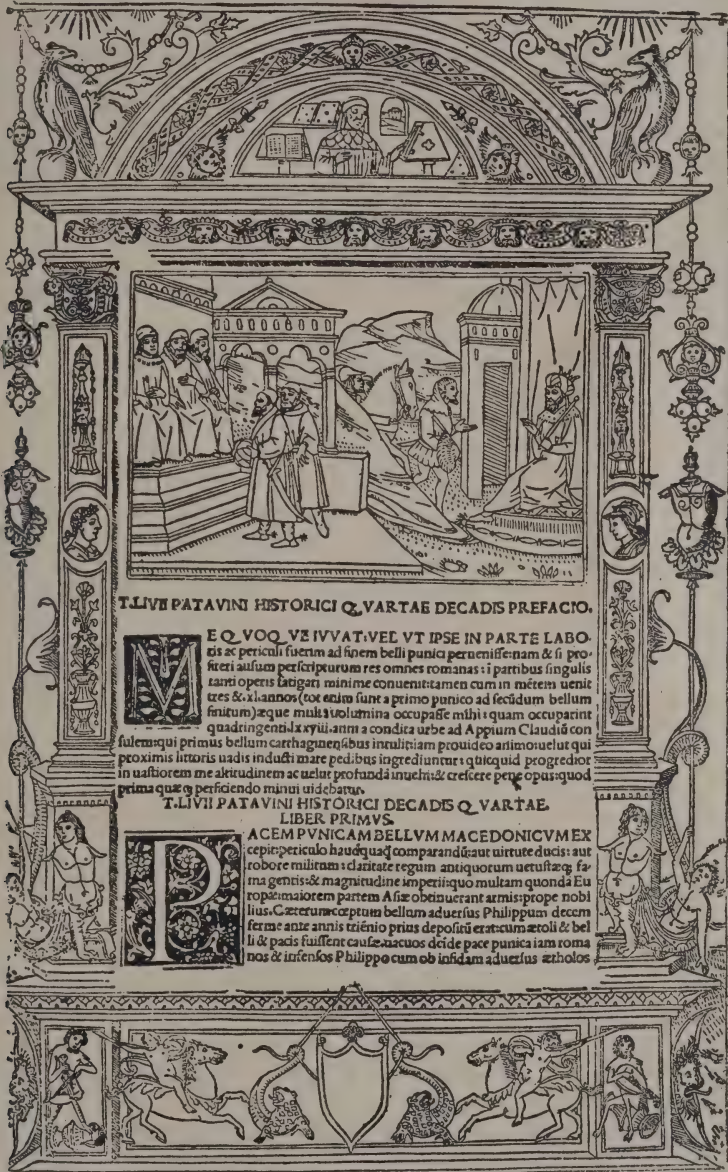 T.LIVII PATAVINI HISTORICI Q VARTAE DECADIS PREFACIO.
ME Q VOQ VE IVVAT:VEL VT IPSE IN PARTE LABO-
ris ac periculi fuerim ad finem belli punici peruenisse:nam & si pro-
fiteri ausum perscripturum res omnes romanas: i partibus singulis
tanti operis fatigari minime conuenit:tamen cum in mẽtem uenit
tres &.xl.annos(tot enim sunt a primo punico ad secũdum bellum
finitum)æque multa uolumina occupasse mihi: quam occuparint
quadringenti.lxxyiii.anni a condita urbe ad Appium Claudiũ con
sulem:qui primus bellum carthaginensibus intulit:iam prouideo animo:uelut qui
proximis littoris uadis inducti mare pedibus ingrediuntur: quicquid progredior
in uastiorem me altitudinem ac uelut profundã inuehi:& crescere pene opus:quod
prima quæq perficiendo minui uidebatur.
T.LIVII PATAVINI HISTORICI DECADIS Q VARTAE.
LIBER PRIMVS.
PACEM PVNICAM BELLVM MACEDONICVM EX
cepit:periculo haudquaq̃ comparandũ:aut uirtute ducis: aut
robore militum: claritate regum antiquorum uetustaq; fa-
ma gentis:& magnitudine imperii:quo multam quonda Eu
ropæ:maiorem partem Asiæ obtinuerant armis:prope nobi
lius.Cæterum:cœptum bellum aduersus Philippum decem
ferme ante annis triẽnio prius depositũ erat:cum ætoli & bel
li & pacis fuissent causæ.uacuos deide pace punica iam roma
nos & infensos Philippo cum ob infidam aduersus ætholos